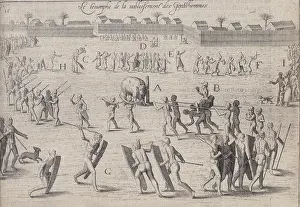 Le triumphe de la noblissement des Gentilhommes
D
H
F
I
A
B
G